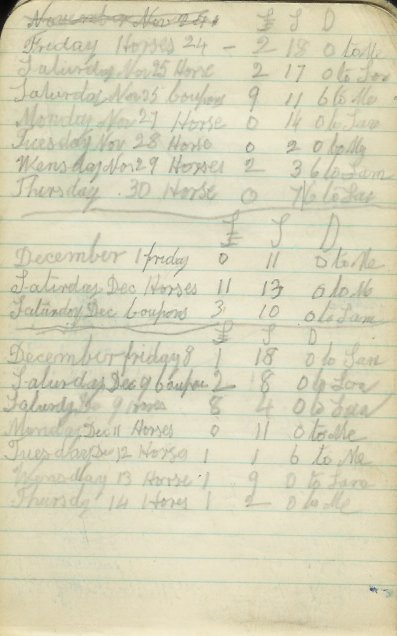 November Nov 24 £ S D
Friday Horses 24 - 2 18 0 to Me
Saturday Nov 25 Horse 2 17 0 to
Saturday Nov 25 Coupons 9 11 6 to Me
Monday Nov 27 Horse 0 14 0 to
Tuesday Nov 28 Horse 0 2 0 to Me
Wensday Nov 29 Horses 2 3 6 to Sam
Thursday 30 Horse 0 7 6 to
£ S D
December 1 friday 0 11 0 to Me
Saturday Dec Horses 11 13 0 to Me
Saturday Dec Coupons 3 10 0 to Sam
£ S D
December friday 8 1 18 0 to
Saturday Dec 9 Coupon 2 8 0 to
Saturdy Dec 9 Horses 8 4 0 to
Monday Dec 11 Horses 0 11 0 to Me
Tuesday Dec 12 Horses 1 1 6 to Me
Wensday 13 Horse 1 9 0 to
Thursdy 14 Horses 1 2 0 to Me